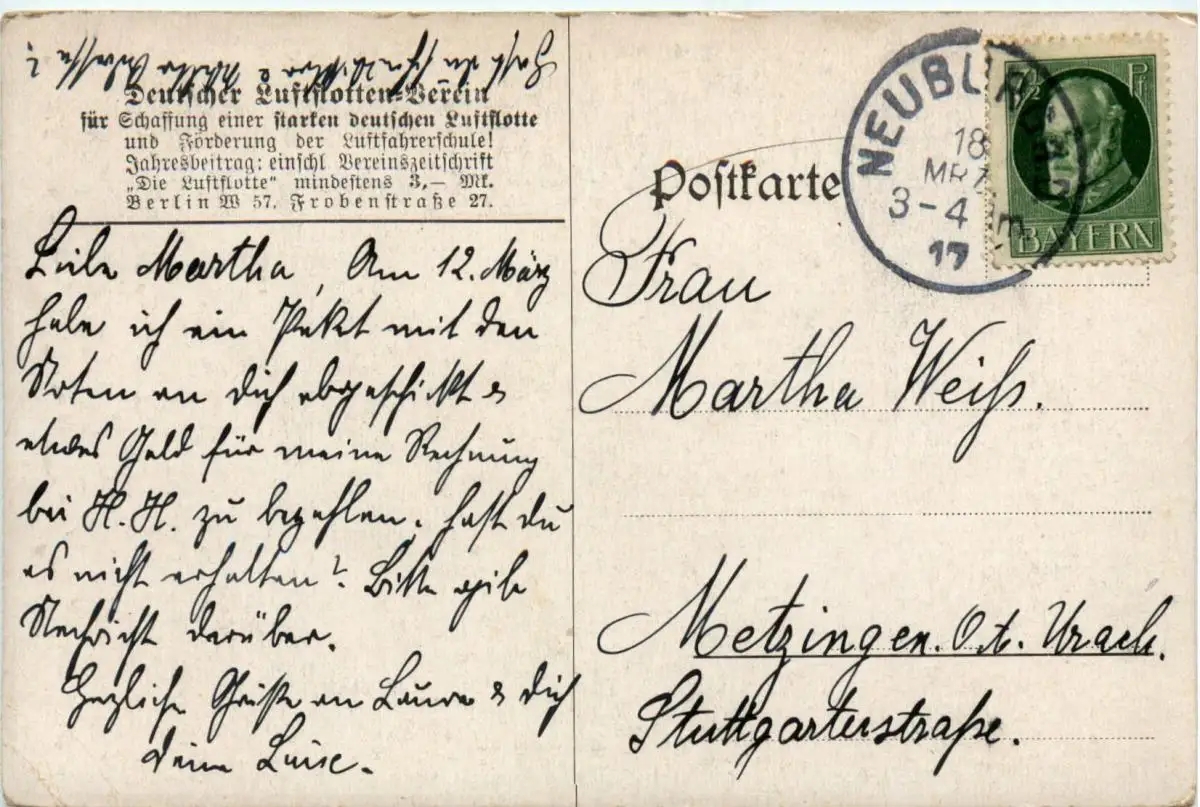 Deutscher Luftflotten-Verein
für Schaffung einer starken deutschen Luftflotte
und Förderung der Luftfahrerschule!
Jahresbeitrag: einschl. Vereinszeitschrift
„Die Luftflotte" mindestens 3,— Mk.
Berlin W 57, Frobenstraße 27.
Liebe Martha, Am 12. März
habe ich ein Paket mit den
Noten an dich abgeschickt &
etwas Geld für meine Rechnung
bei H. H. zu bezahlen, hast du
es nicht erhalten? Bitte gib
Nachricht darüber.
Herzliche Grüße an Laura & dich
deine Luise.
Hast du
Postkarte
NEUBURG
18
MRZ
3-4 Nm
17
Pf
BAYERN
Frau
Martha Weiß.
Metzingen. O.A. Urach.
Stuttgarterstraße.